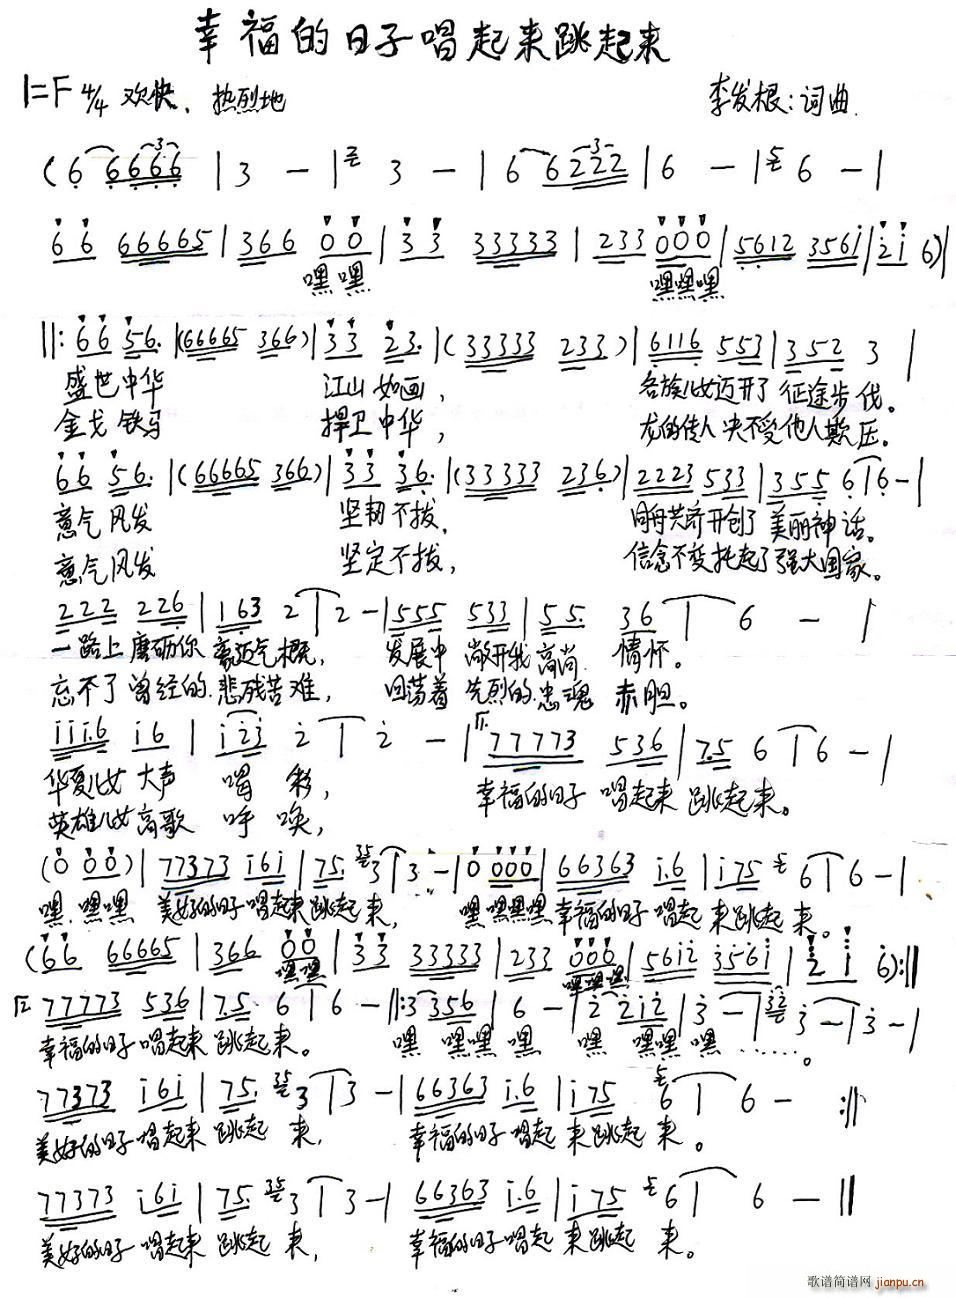 幸福的日子唱起来跳起来
1=F 4/4 欢快、热烈地 李发根:词曲
(6 6666 | 3 - | 3 - | 6 6222 | 6 - | 6 - |
66 66665 | 366 00 | 33 33333 | 233 000 | 5612 3561 | 21 6) |
嘿嘿 嘿嘿嘿
‖: 66 56. | (66665 366) | 33 23. | (33333 233) | 6116 553 | 352 3 |
盛世中华 江山如画, 各族儿女迈开了 征途步伐。
金戈铁马 捍卫中华, 龙的传人决不受他人欺压。
66 56. | (66665 366) | 33 36. | (33333 236) | 2223 533 | 355 6 | 6 - |
意气风发 坚韧不拔, 同舟共济开创了美丽神话。
意气风发 坚定不拔, 信念不变托起了强大国家。
222 226 | 163 2 | 2 - | 555 533 | 55. 36 | 6 - |
一路上磨砺你豪迈气概, 发展中敞开我高尚情怀。
忘不了曾经的悲残苦难, 回荡着先烈的忠魂赤胆。
111.6 16 | 123 2 | 2 - | 77773 536 | 7.5 6 | 6 - |
华夏儿女大声喝彩, 幸福的日子唱起来跳起来。
英雄儿女高歌呼唤,
(0 00) | 77373 161 | 75. 3 | 3 - | 0 000 | 66363 1.6 | 1 75 6 | 6 - |
嘿 嘿嘿 美好的日子唱起来跳起来, 嘿嘿嘿嘿幸福的日子唱起来跳起来。
(66 66665 | 366 00 | 33 33333 | 233 000 | 5612 3561 | 2 1 6) :‖
嘿嘿 嘿嘿嘿
77773 536 | 75. 6 | 6 - ‖: 3 356 | 6 - | 2 212 | 3 - | 3 - | 3 - |
幸福的日子唱起来跳起来。 嘿 嘿嘿嘿 嘿 嘿嘿嘿……。
77373 161 | 75. 3 | 3 - | 66363 1.6 | 1 75 6 | 6 - :‖
美好的日子唱起来跳起来, 幸福的日子唱起来跳起来。
77373 161 | 75. 3 | 3 - | 66363 1.6 | 1 75 6 | 6 - ‖
美好的日子唱起来跳起来, 幸福的日子唱起来跳起来。
歌谱简谱网 jianpu.cn